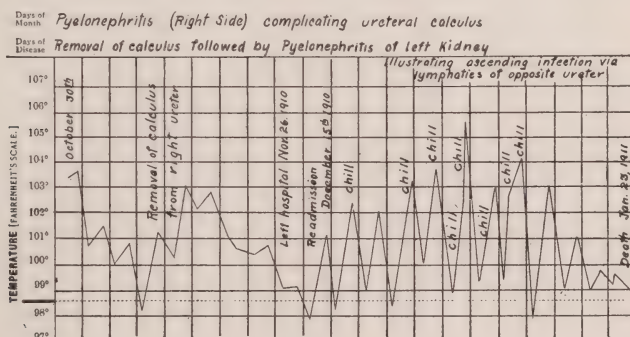 Days of Month Pyelonephritis (Right Side) complicating ureteral calculus
Days of Disease Removal of calculus followed by Pyelonephritis of left Kidney
Illustrating ascending infection via
lymphatics of opposite ureter
TEMPERATURE [FAHRENHEIT'S SCALE.]
107°
106°
105°
104°
103°
102°
101°
100°
99°
98°
97°
October 30th
Removal of calculus
from right ureter
Left hospital Nov. 26, 1910
Readmission
December 15th 1910
chill
chill
chill
chill
chill
chill
chill
chill
Death Jan. 23, 1911